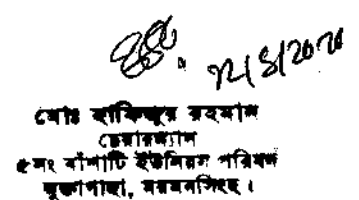 মোঃ হাফিজুর রহমান
চেয়ারম্যান
৫নং বাঁশাটি ইউনিয়ন পরিষদ
মুক্তাগাছা, ময়মনসিংহ।